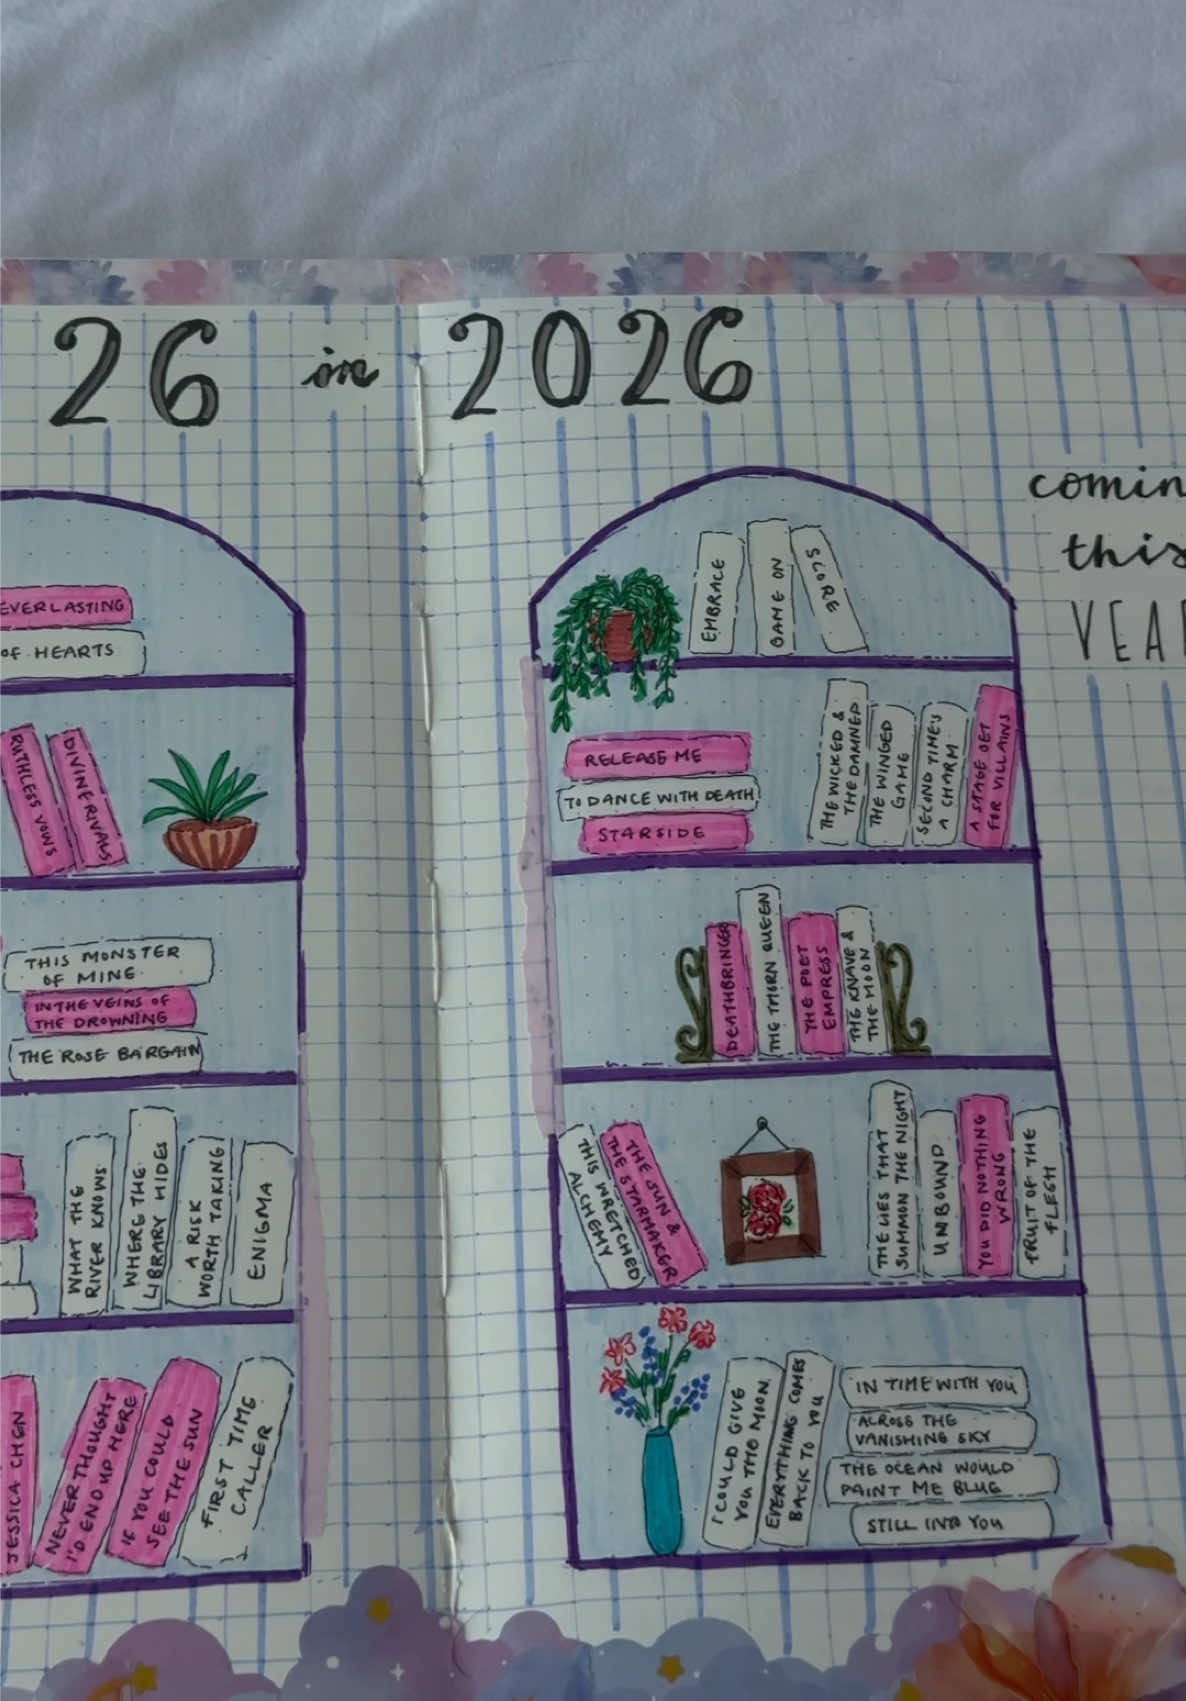 26 in 2026
EVERLASTING
OF HEARTS
RUTHLESS VOWS
DIVINE RIVALS
THIS MONSTER
OF MINE
IN THE VEINS OF
THE DROWNING
THE ROSE BARGAIN
WHAT THE
RIVER KNOWS
WHERE THE
LIBRARY HIDES
A RISK
WORTH TAKING
ENIGMA
JESSICA CHEN
NEVER THOUGHT
I'D END UP HERE
IF YOU COULD
SEE THE SUN
FIRST TIME
CALLER
EMBRACE
GAME ON
SCORE
RELEASE ME
TO DANCE WITH DEATH
STARSIDE
THE WICKED &
THE DAMNED
THE WINGED
GAME
SECOND TIME'S
A CHARM
A STAGE SET
FOR VILLAINS
DEATHBRINGER
THE THORN QUEEN
THE POET
EMPRESS
THE KNAVE &
THE MOON
THIS WRETCHED
ALCHEMY
THE SUN &
THE STARMAKER
THE LIES THAT
SUMMON THE NIGHT
UNBOUND
YOU DID NOTHING
WRONG
FRUIT OF THE
FLESH
I COULD GIVE
YOU THE MOON
EVERYTHING COMES
BACK TO YOU
IN TIME WITH YOU
ACROSS THE
VANISHING SKY
THE OCEAN WOULD
PAINT ME BLUE
STILL INTO YOU
comin
this
YEA